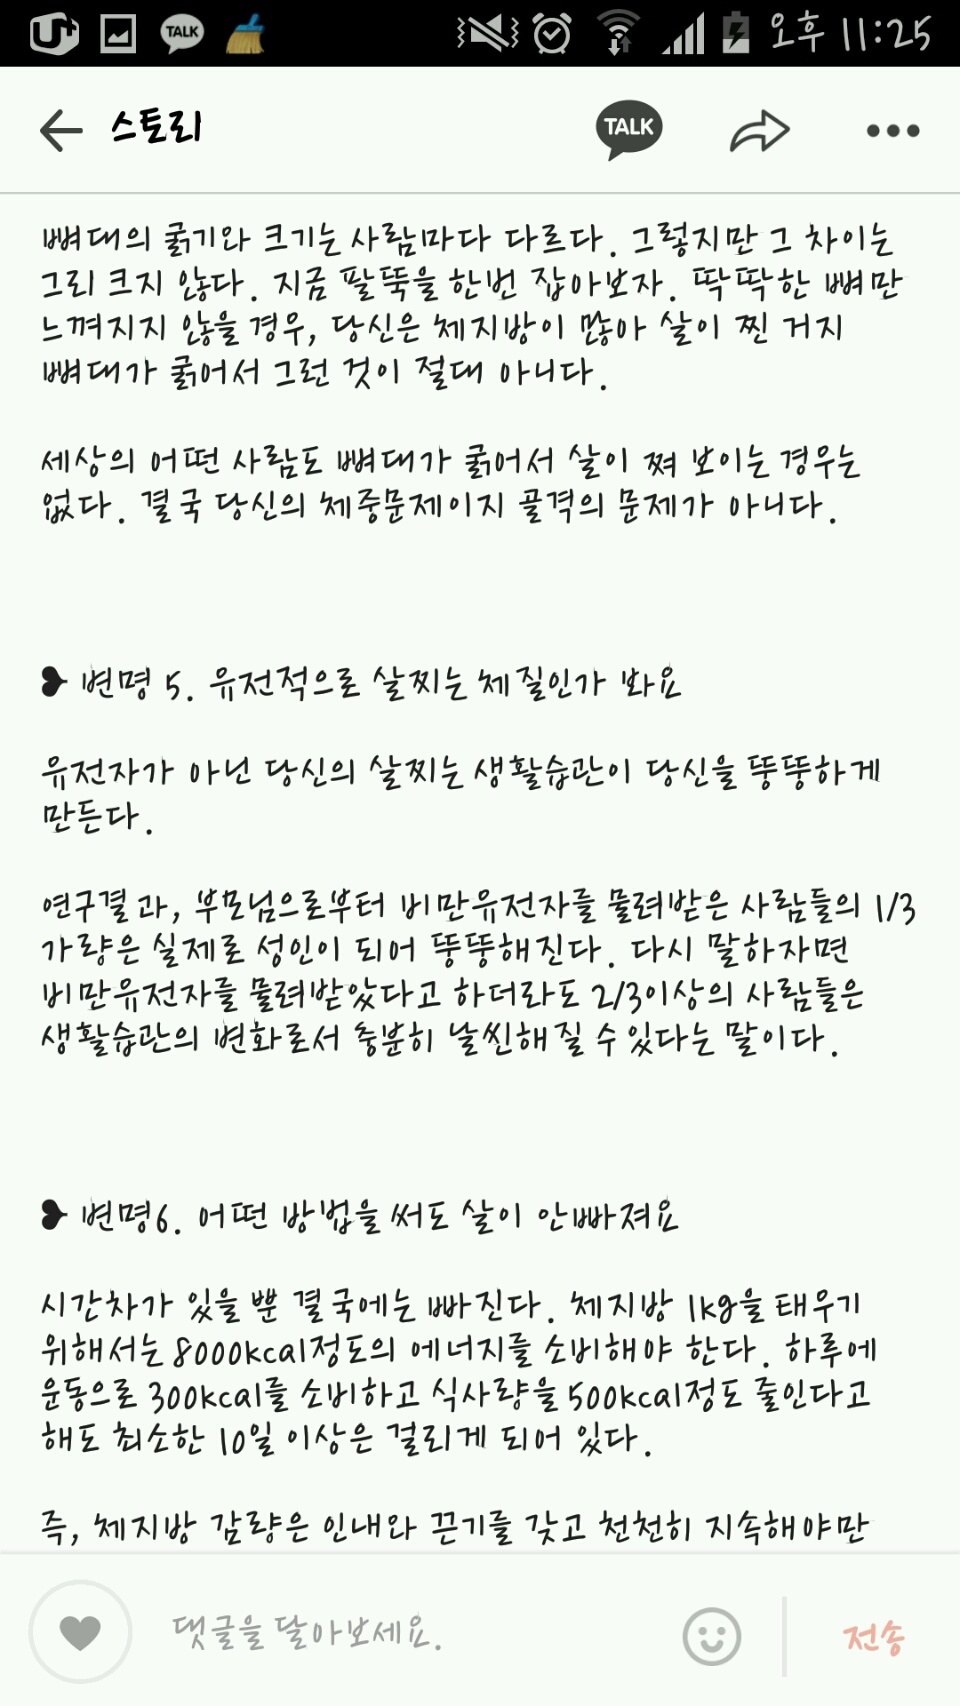 U+ TALK 오후 11:25
스토리 TALK
뼈대의 굵기와 크기는 사람마다 다르다. 그렇지만 그 차이는
그리 크지 않다. 지금 팔뚝을 한번 잡아보자. 딱딱한 뼈만
느껴지지 않을 경우, 당신은 체지방이 많아 살이 찐 거지
뼈대가 굵어서 그런 것이 절대 아니다.
세상의 어떤 사람도 뼈대가 굵어서 살이 쪄 보이는 경우는
없다. 결국 당신의 체중문제이지 골격의 문제가 아니다.
❥ 변명 5. 유전적으로 살찌는 체질인가 봐요
유전자가 아닌 당신의 살찌는 생활습관이 당신을 뚱뚱하게
만든다.
연구결과, 부모님으로부터 비만유전자를 물려받은 사람들의 1/3
가량은 실제로 성인이 되어 뚱뚱해진다. 다시 말하자면
비만유전자를 물려받았다고 하더라도 2/3이상의 사람들은
생활습관의 변화로서 충분히 날씬해질 수 있다는 말이다.
❥ 변명6. 어떤 방법을 써도 살이 안빠져요
시간차가 있을 뿐 결국에는 빠진다. 체지방 1kg을 태우기
위해서는 8000kcal정도의 에너지를 소비해야 한다. 하루에
운동으로 300kcal를 소비하고 식사량을 500kcal정도 줄인다고
해도 최소한 10일 이상은 걸리게 되어 있다.
즉, 체지방 감량은 인내와 끈기를 갖고 천천히 지속해야만
댓글을 달아보세요. 전송